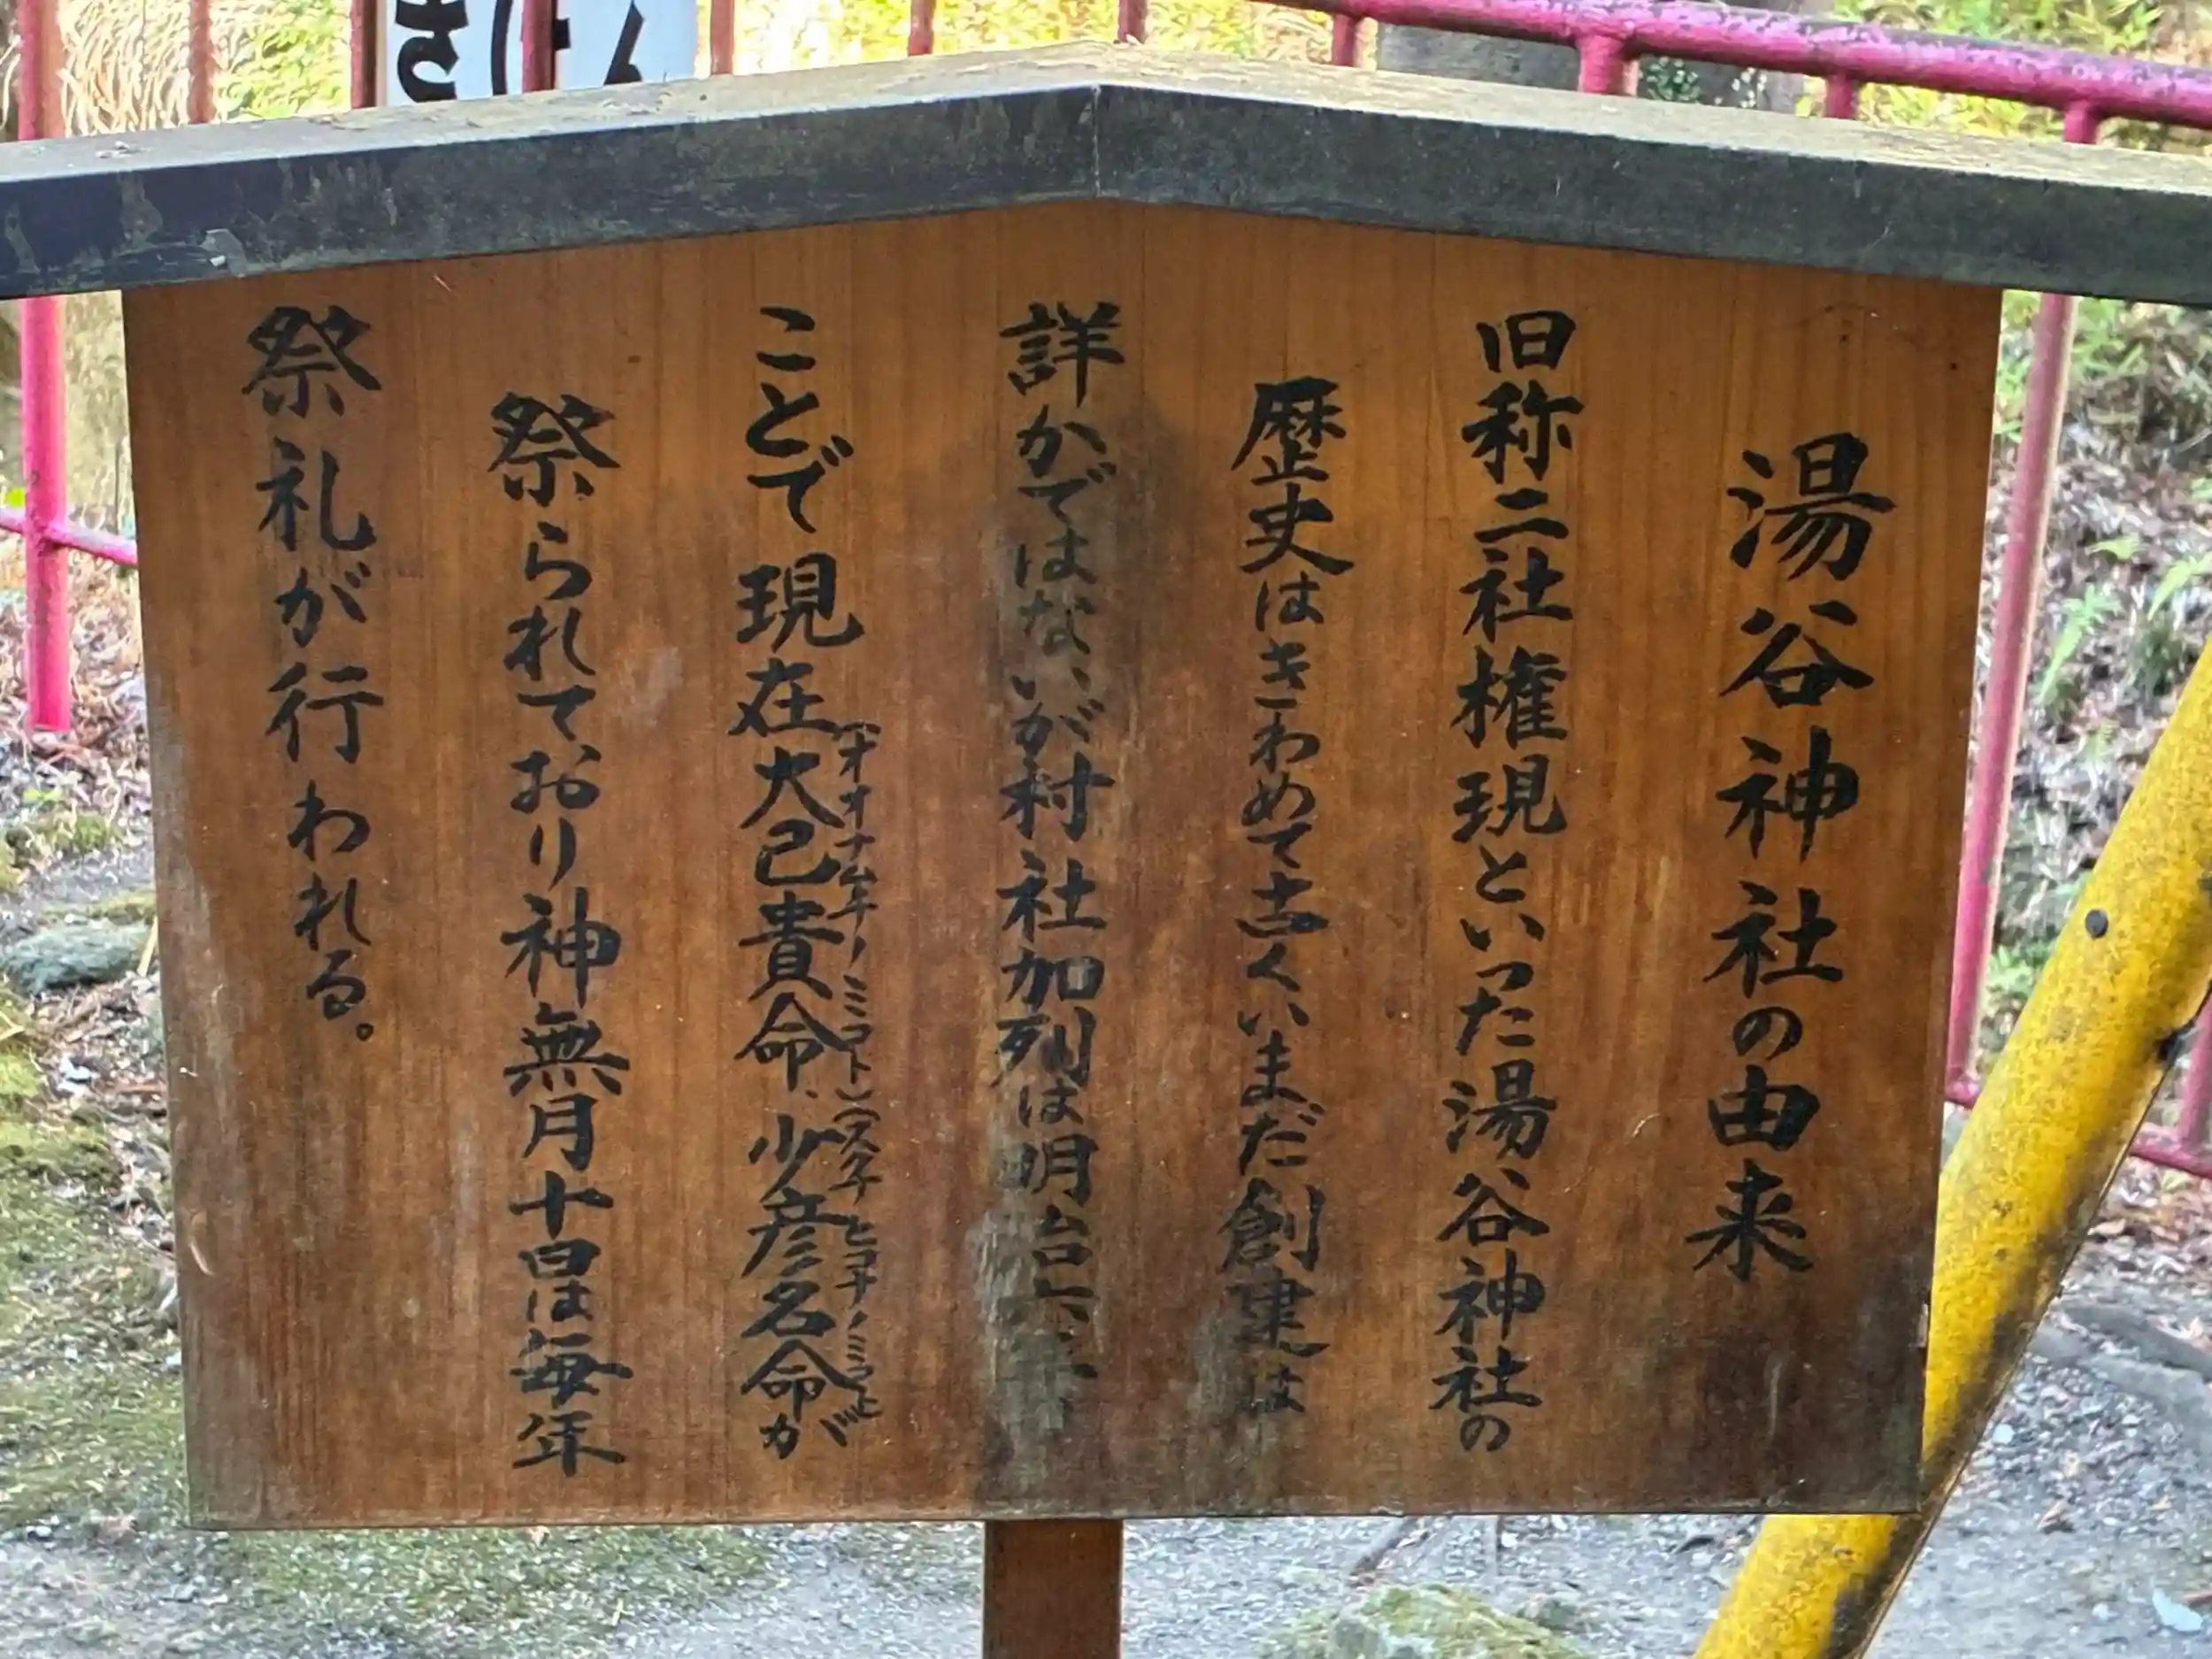 湯谷神社の由来
旧称二社権現といった湯谷神社の
歴史はきわめて古くいまだ創建は
詳かではないが村社加列は明治六年
ことで現在大己貴命、少彦名命が
(オオナムチノミコト)(スクナヒコナノミコト)
祭られており神無月十日は毎年
祭礼が行われる。
きけん